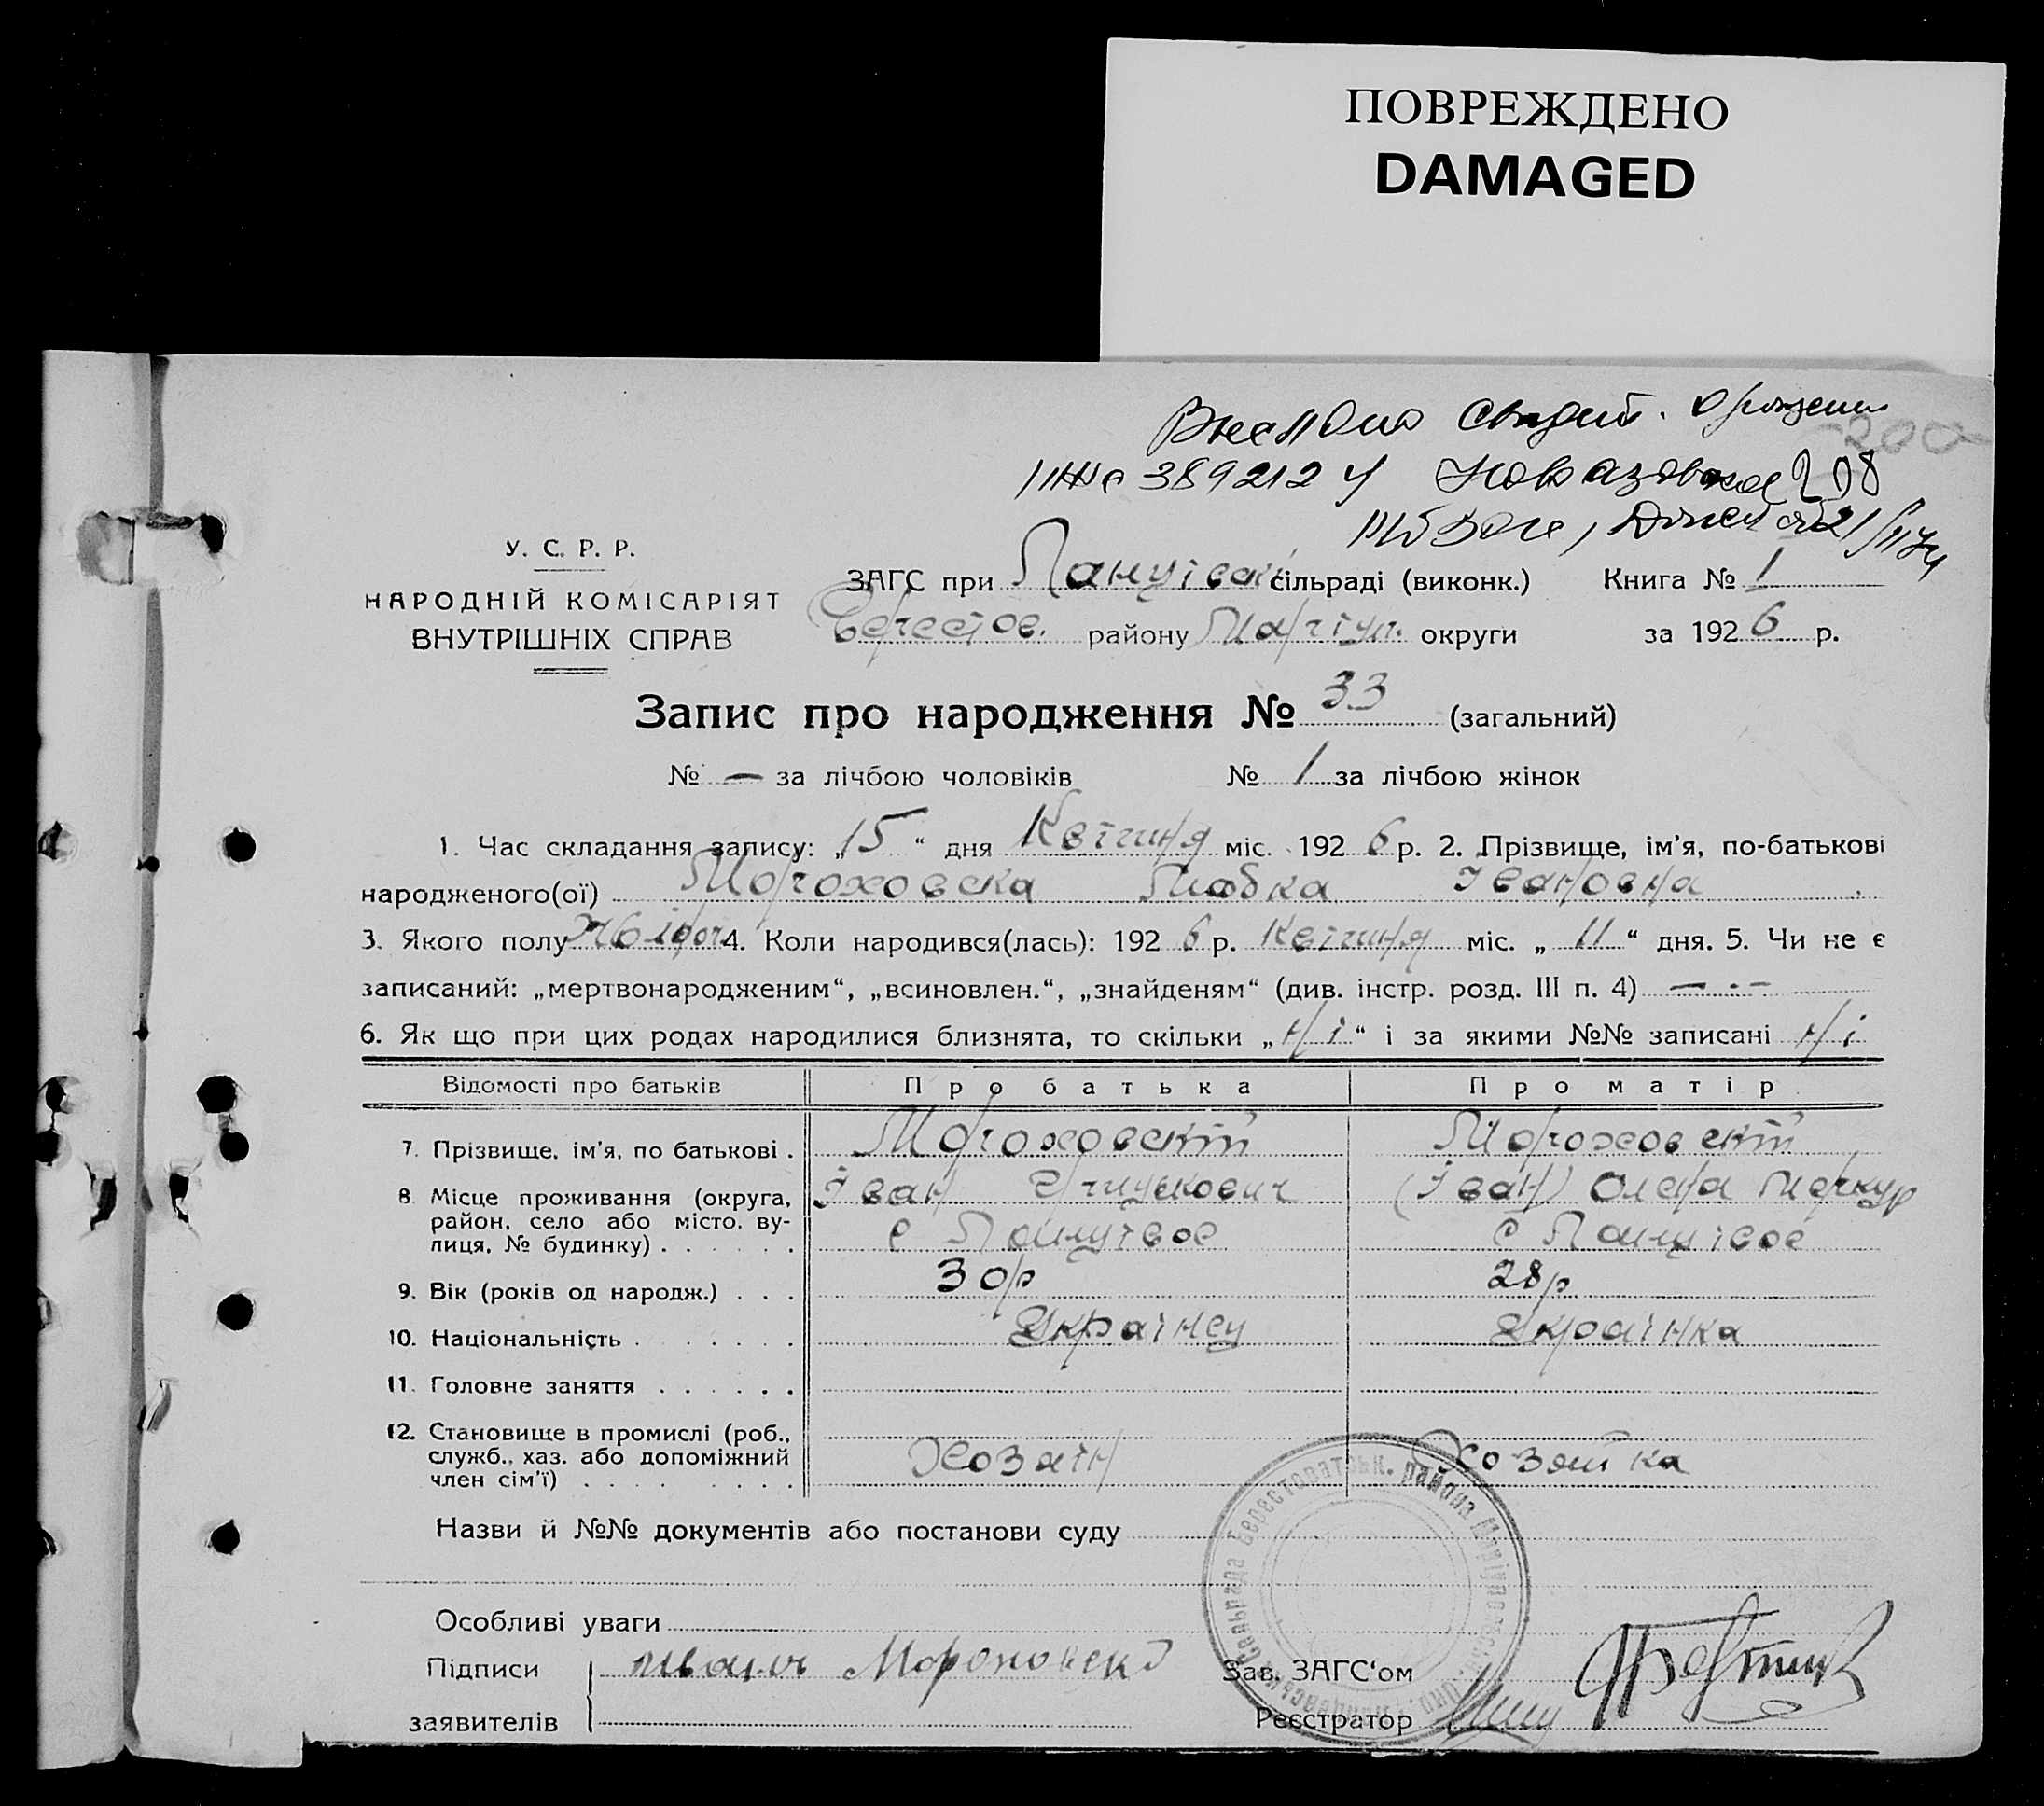 ПОВРЕЖДЕНО
DAMAGED
389212
У. С. Р. Р.
НАРОДНІЙ КОМІСАРІЯТ
ВНУТРІШНІХ СПРАВ
ЗАГС при сільраді (виконк.) Книга № 1
Берестов. району Маріуп. округи за 1926 р.
Запис про народження № 33 (загальний)
№ — за лічбою чоловіків № 1 за лічбою жінок
1. Час складання запису: „15“ дня Квітня міс. 1926 р. 2. Прізвище, ім'я, по-батькові
народженого(ої) Мороховска Любка Івановна
3. Якого полу 4. Коли народився(лась): 1926 р. Квітня міс. „11“ дня. 5. Чи не є
записаний: „мертвонародженим“, „всиновлен.“, „знайденям“ (див. інстр. розд. III п. 4) — - –
6. Як що при цих родах народилися близнята, то скільки „Ні“ і за якими №№ записані Ні
Відомості про батьків Про батька Про матір
7. Прізвище, ім'я, по батькові . Мороховскій Мороховскій
8. Місце проживання (округа, Іван (Іван) Олена Меркур
район, село або місто, ву-
лиця, № будинку) . . . . . . с с
9. Вік (років од народж.) . . . 30р 28р
10. Національність . . . . . . . Українец Українка
11. Головне заняття . . . . . .
12. Становище в промислі (роб.,
служб., хаз. або допоміжний Хозаін Хозяйка
член сім'ї) . . . . . . . .
Назви й №№ документів або постанови суду
Особливі уваги
Підписи Мороховскі Зав. ЗАГС'ом
заявителів Реєстратор